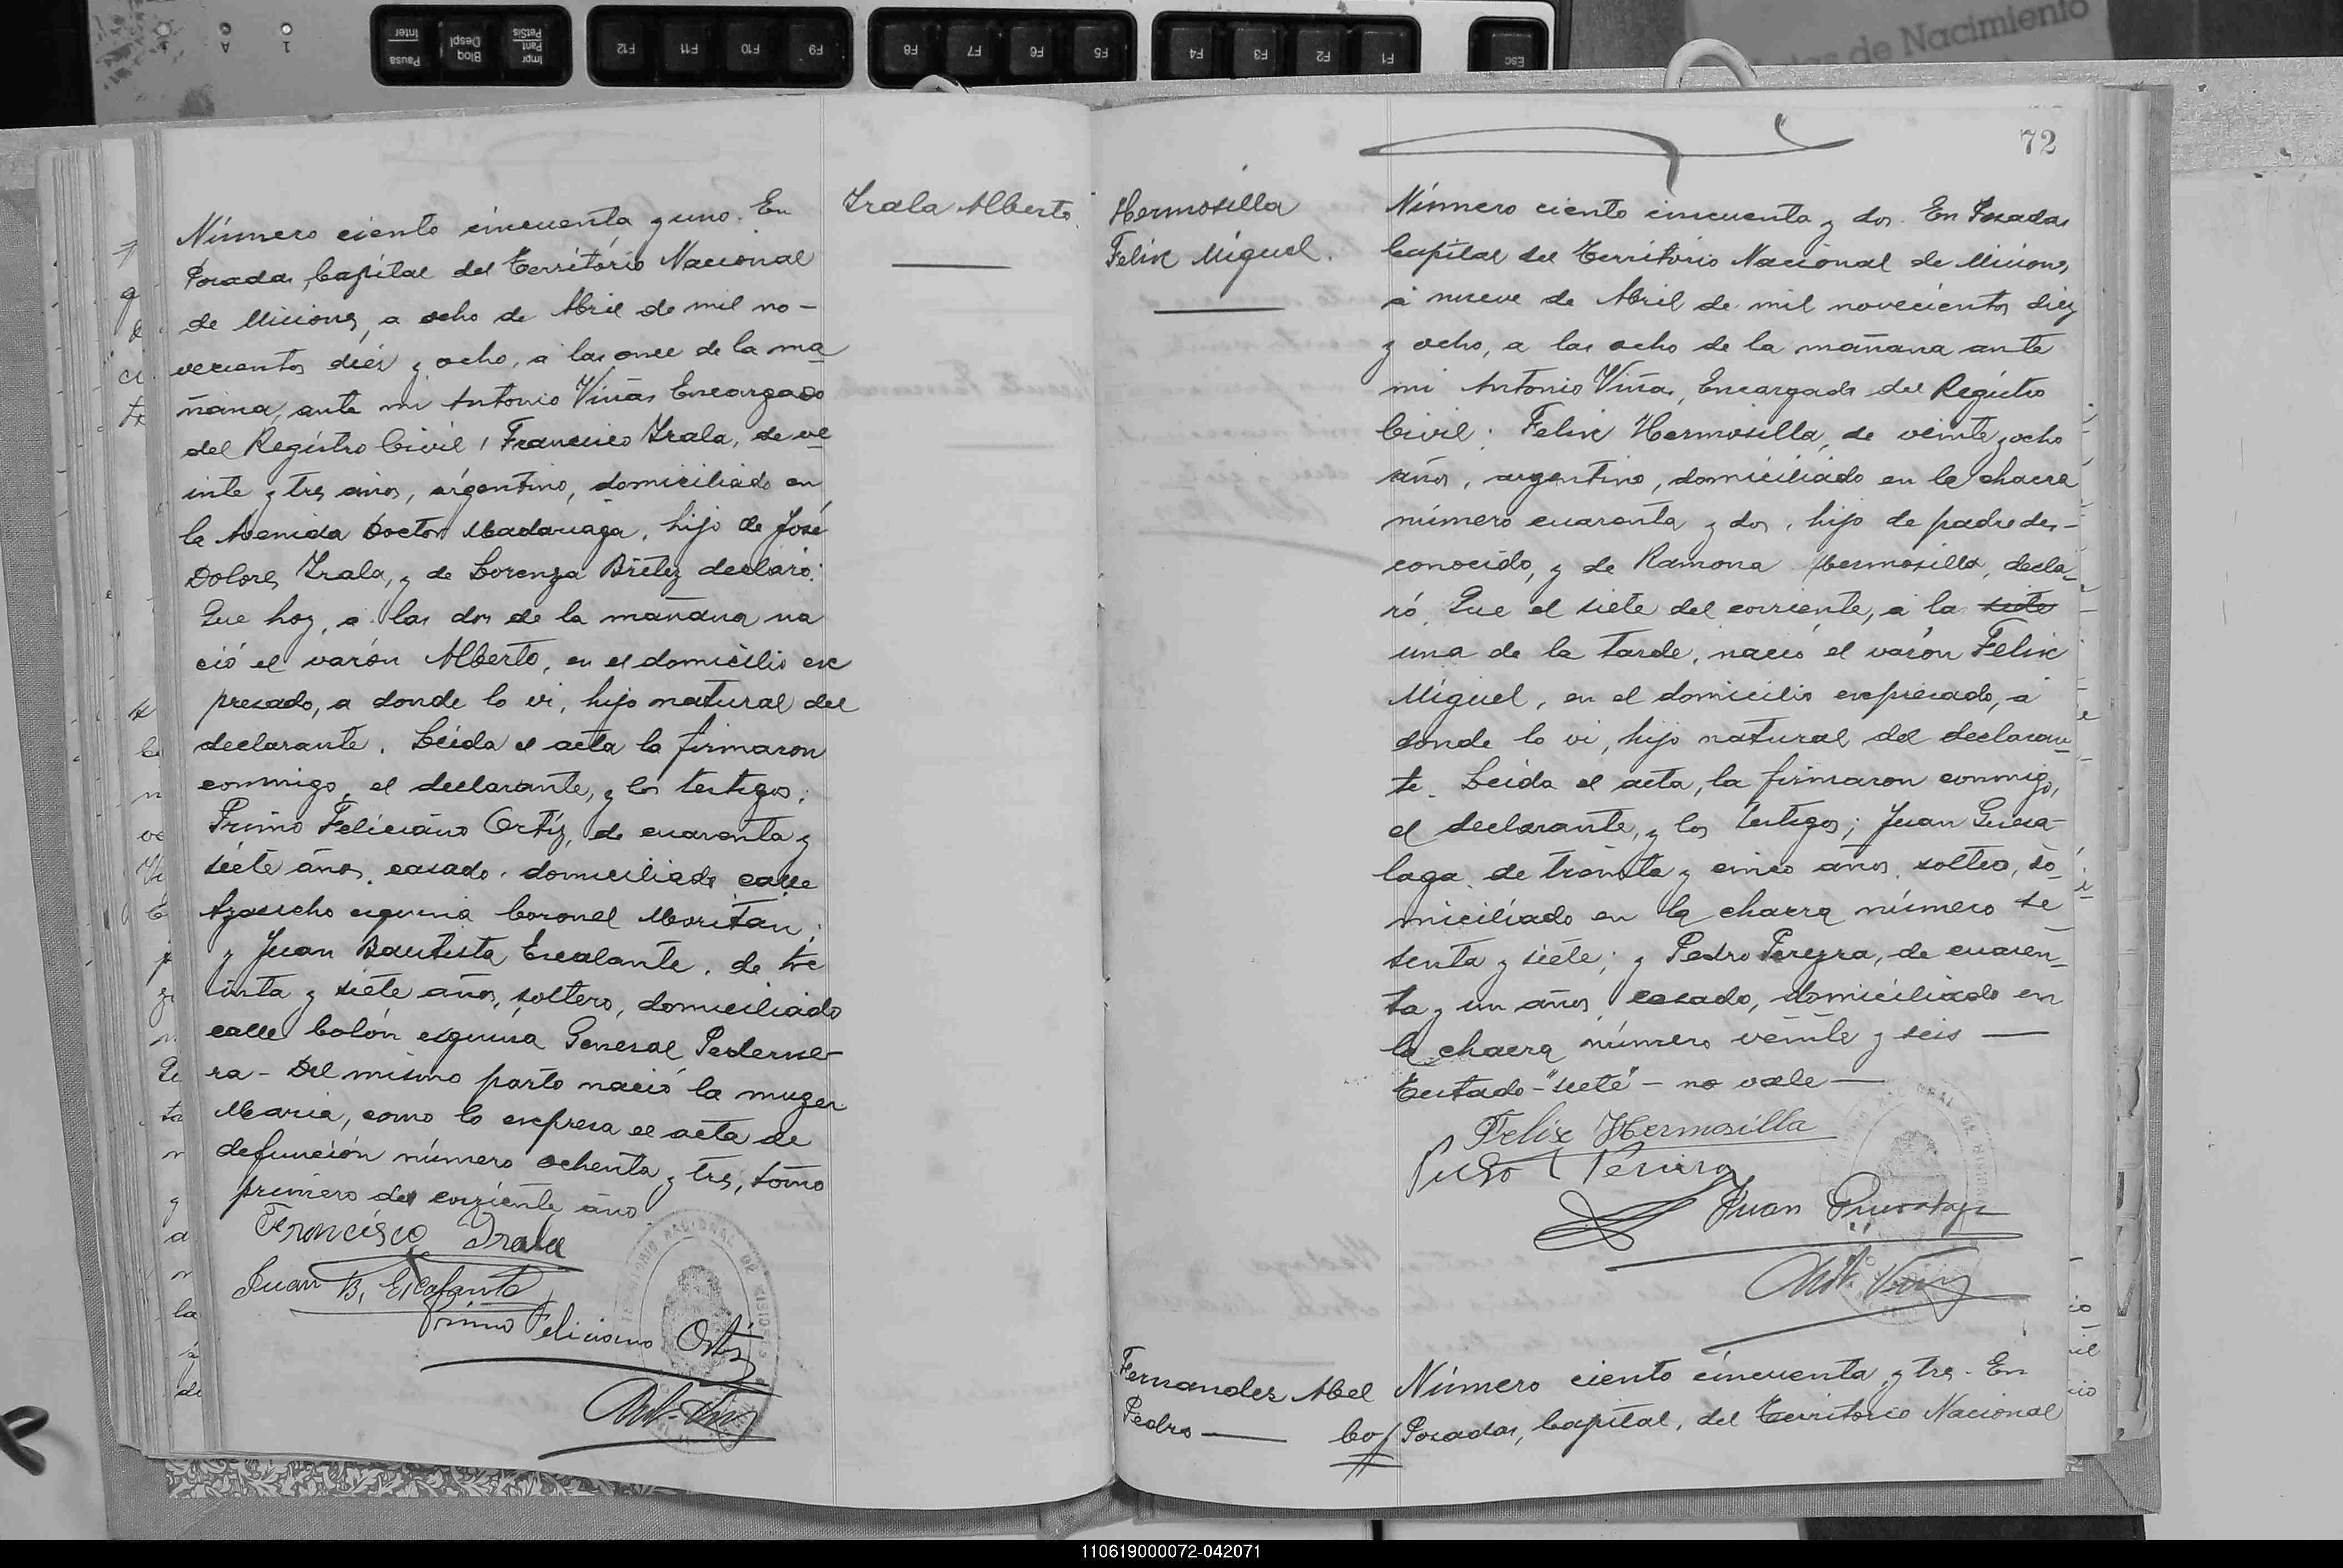 Actas de Nacimiento
Inter
Pausa
Despl
Bloq
PetSis
Pant
Impr
F12
F11
F10
F9
F8
F7
F6
F5
F4
F3
F2
F1
Esc
Irala Alberto
Número ciento cincuenta y uno. En
Posadas, Capital del Territorio Nacional
de Misiones, a ocho de Abril de mil no-
vecientos diez y ocho, a las once de la ma
ñana, ante mi Antonio Viñas Encargado
del Registro Civil, Francisco Irala, de ve
inte y tres años, argentino, domiciliado en
la Avenida Doctor Madariaga, hijo de José
Dolores Irala, y de Lorenza Britez declaró:
Que hoy, a las dos de la mañana na
ció el varón Alberto, en el domicilio ex
presado, a donde lo vi, hijo natural del
declarante. Leida el acta la firmaron
conmigo, el declarante, y los testigos;
Primo Feliciano Ortiz, de cuarenta y
siete años, casado, domiciliado calle
Ayacucho esquina Coronel Moritan;
y Juan Bautista Escalante, de tre
inta y siete años, soltero, domiciliado
calle Colón esquina General Pederne-
ra - Del mismo parto nació la muger
Maria, como lo expresa el acta de
defunción número ochenta y tres, tomo
primero del corriente año.
Francisco Irala
Juan B. Escalante
Primo Feliciano Ortiz
TERRITORIO NACIONAL DE MISIONES
Ant. Viñas
72
Hermosilla
Felix Miguel.
Número ciento cincuenta y dos. En Posadas
Capital del Territorio Nacional de Misiones,
a nueve de Abril de mil novecientos diez
y ocho, a las ocho de la mañana ante
mi Antonio Viñas, Encargado del Registro
Civil: Felix Hermosilla, de veinte y ocho
años, argentino, domiciliado en la chacra
número cuarenta y dos, hijo de padre des-
conocido, y de Ramona Hermosilla, decla-
ró. Que el siete del corriente, a la siete
una de la tarde, nació el varón Felix
Miguel, en el domicilio expresado, a
donde lo vi, hijo natural del declaran-
te. Leida el acta, la firmaron conmigo,
el declarante, y los testigos; Juan
laga, de treinta y cinco años, soltero, do-
miciliado en la chacra número se
senta y siete; y Pedro Pereyra, de cuaren-
ta y un años, casado, domiciliado en
la chacra número veinte y seis
Testado - "siete" - no vale
Felix Hermosilla
Pedro Pereira
Juan
Ant. Viñas
Fernandez Abel
Pedro
Número ciento cincuenta y tres. En
Posadas, Capital, del Territorio Nacional
110619000072-042071